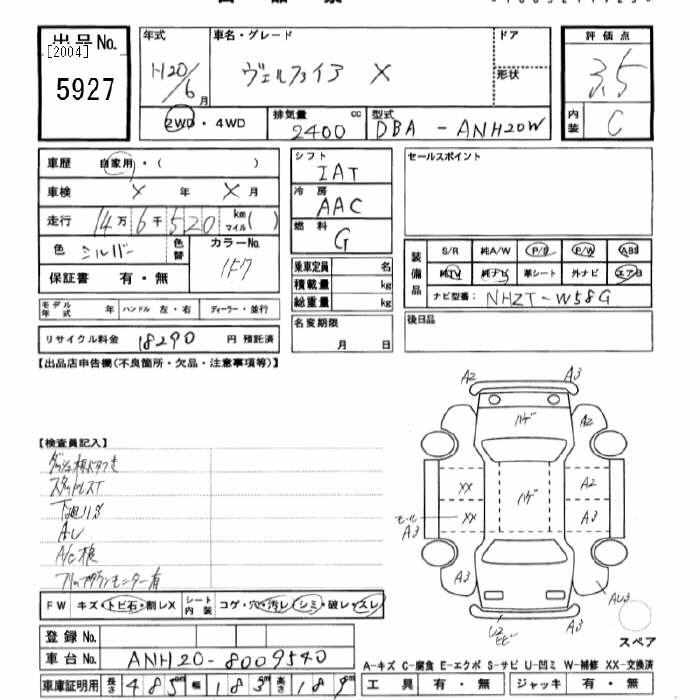 出品No.
[2004]
5927
年式
H20/6月
車名・グレード
ヴェルファイア X
ドア
形状
評価点
3.5
内装
C
2WD・4WD
排気量 cc
2400
型式
DBA-ANH20W
車歴 自家用・( )
車検 X 年 X 月
走行 14万6千520 km マイル( )
色 シルバー 色替
カラーNo.
1F7
保証書 有・無
シフト
IAT
冷房
AAC
燃料
G
乗車定員 名
積載量 kg
総重量 kg
セールスポイント
装備品
S/R 純A/W P/S P/W ABS
純TV 純ナビ 革シート 外ナビ エアB
ナビ型番: NHZT-W58G
モデル年式 年 ハンドル 左・右 ディーラー・並行
名変期限
月 日
後日品
リサイクル料金 18290 円 預託済
【出品店申告欄(不良箇所・欠品・注意事項等)】
A2 A3
ハゲ
A2
XX ハゲ A2
モール A3 XX A3
AU3
U2
A3
スペア
【検査員記入】
スタッドレスT
A/C検
フリップダウンモニター有
FW キズ・トビ石・割レX
シート内装 コゲ・穴・汚レ・シミ・破レ・スレ
登録No.
車台No. ANH20-8009540
A-キズ C-腐食 E-エクボ S-サビ U-凹ミ W-補修 XX-交換済
車庫証明用 長さ 485cm 幅 183cm 高さ 189cm
工具 有・無 ジャッキ 有・無